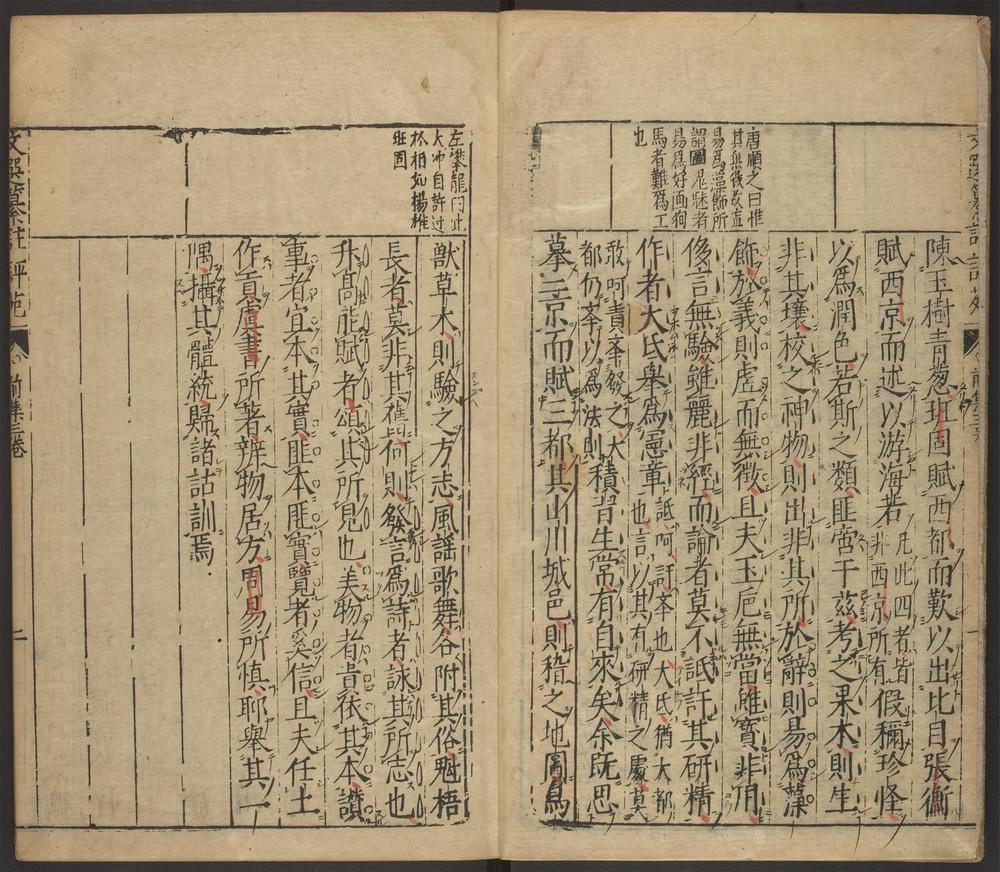 唐順之曰惟
其無後故直
易為藻飾所
謂圖鬼魅者
易為好画狗
馬者難為工
也
陳玉樹青葱班固賦西都而歎以出比目張衡
賦西京而述以游海若凡此四者皆非西京所有假稱珍怪
以為潤色若斯之類匪啻于茲考之果木則生
非其壤校之神物則出非其所於辭則易為藻
飾於義則虗而無徵且夫玉巵無當雖寳非用
侈言無驗雖麗非經而論者莫不詆訐其研精
作者大氏舉為憲章詆呵訐本也大氏猶大都也言以其有研精之處莫
敢呵責本發之大都仍本以為法則積習生常有自來矣余旣思
摹二京而賦三都其山川城邑則稽之地圖鳥
左準龍門此
太冲自許过
於相如楊雄
班固
獸草木則驗之方志風謡歌舞各附其俗魁梧
長者莫非其舊何則發言為詩者詠其所志也
升髙能賦者頌其所見也美物者貴依其本讚
事者宜本其實匪本匪實覽者奚信且夫任土
作貢虞書所著辨物居方周易所慎聊舉其一
隅攝其體統歸諸詁訓焉
前集三卷
二